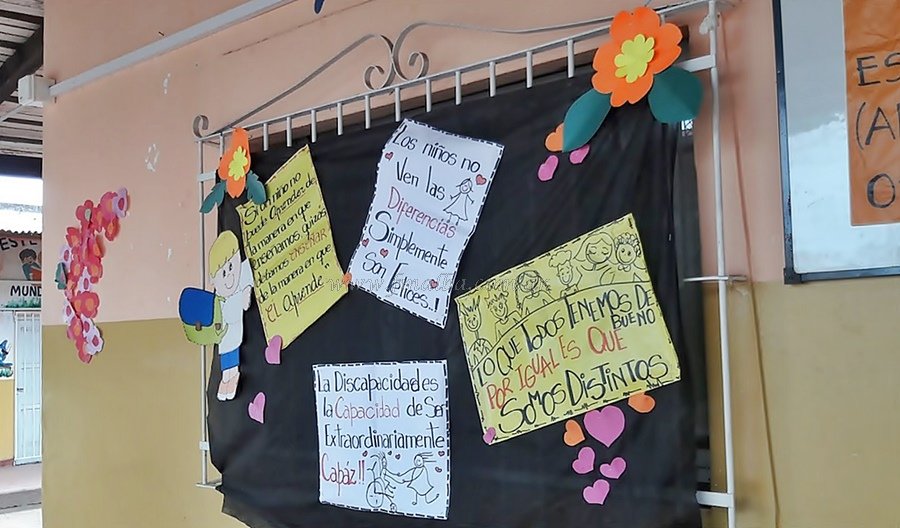 Si un niño no
puede Aprender de
la manera en que
enseñamos quizás
debamos ENSEÑAR
de la manera en que
él Aprende
Los niños no
Ven las
Diferencias
Simplemente
son Felices..!
LO QUE TODOS TENEMOS DE
BUENO
POR IGUAL ES QUE
SOMOS DISTINTOS
la Discapacidad es
la Capacidad de Ser
Extraordinariamente
Capáz!!
ESTE
MUND
ES
(A
O